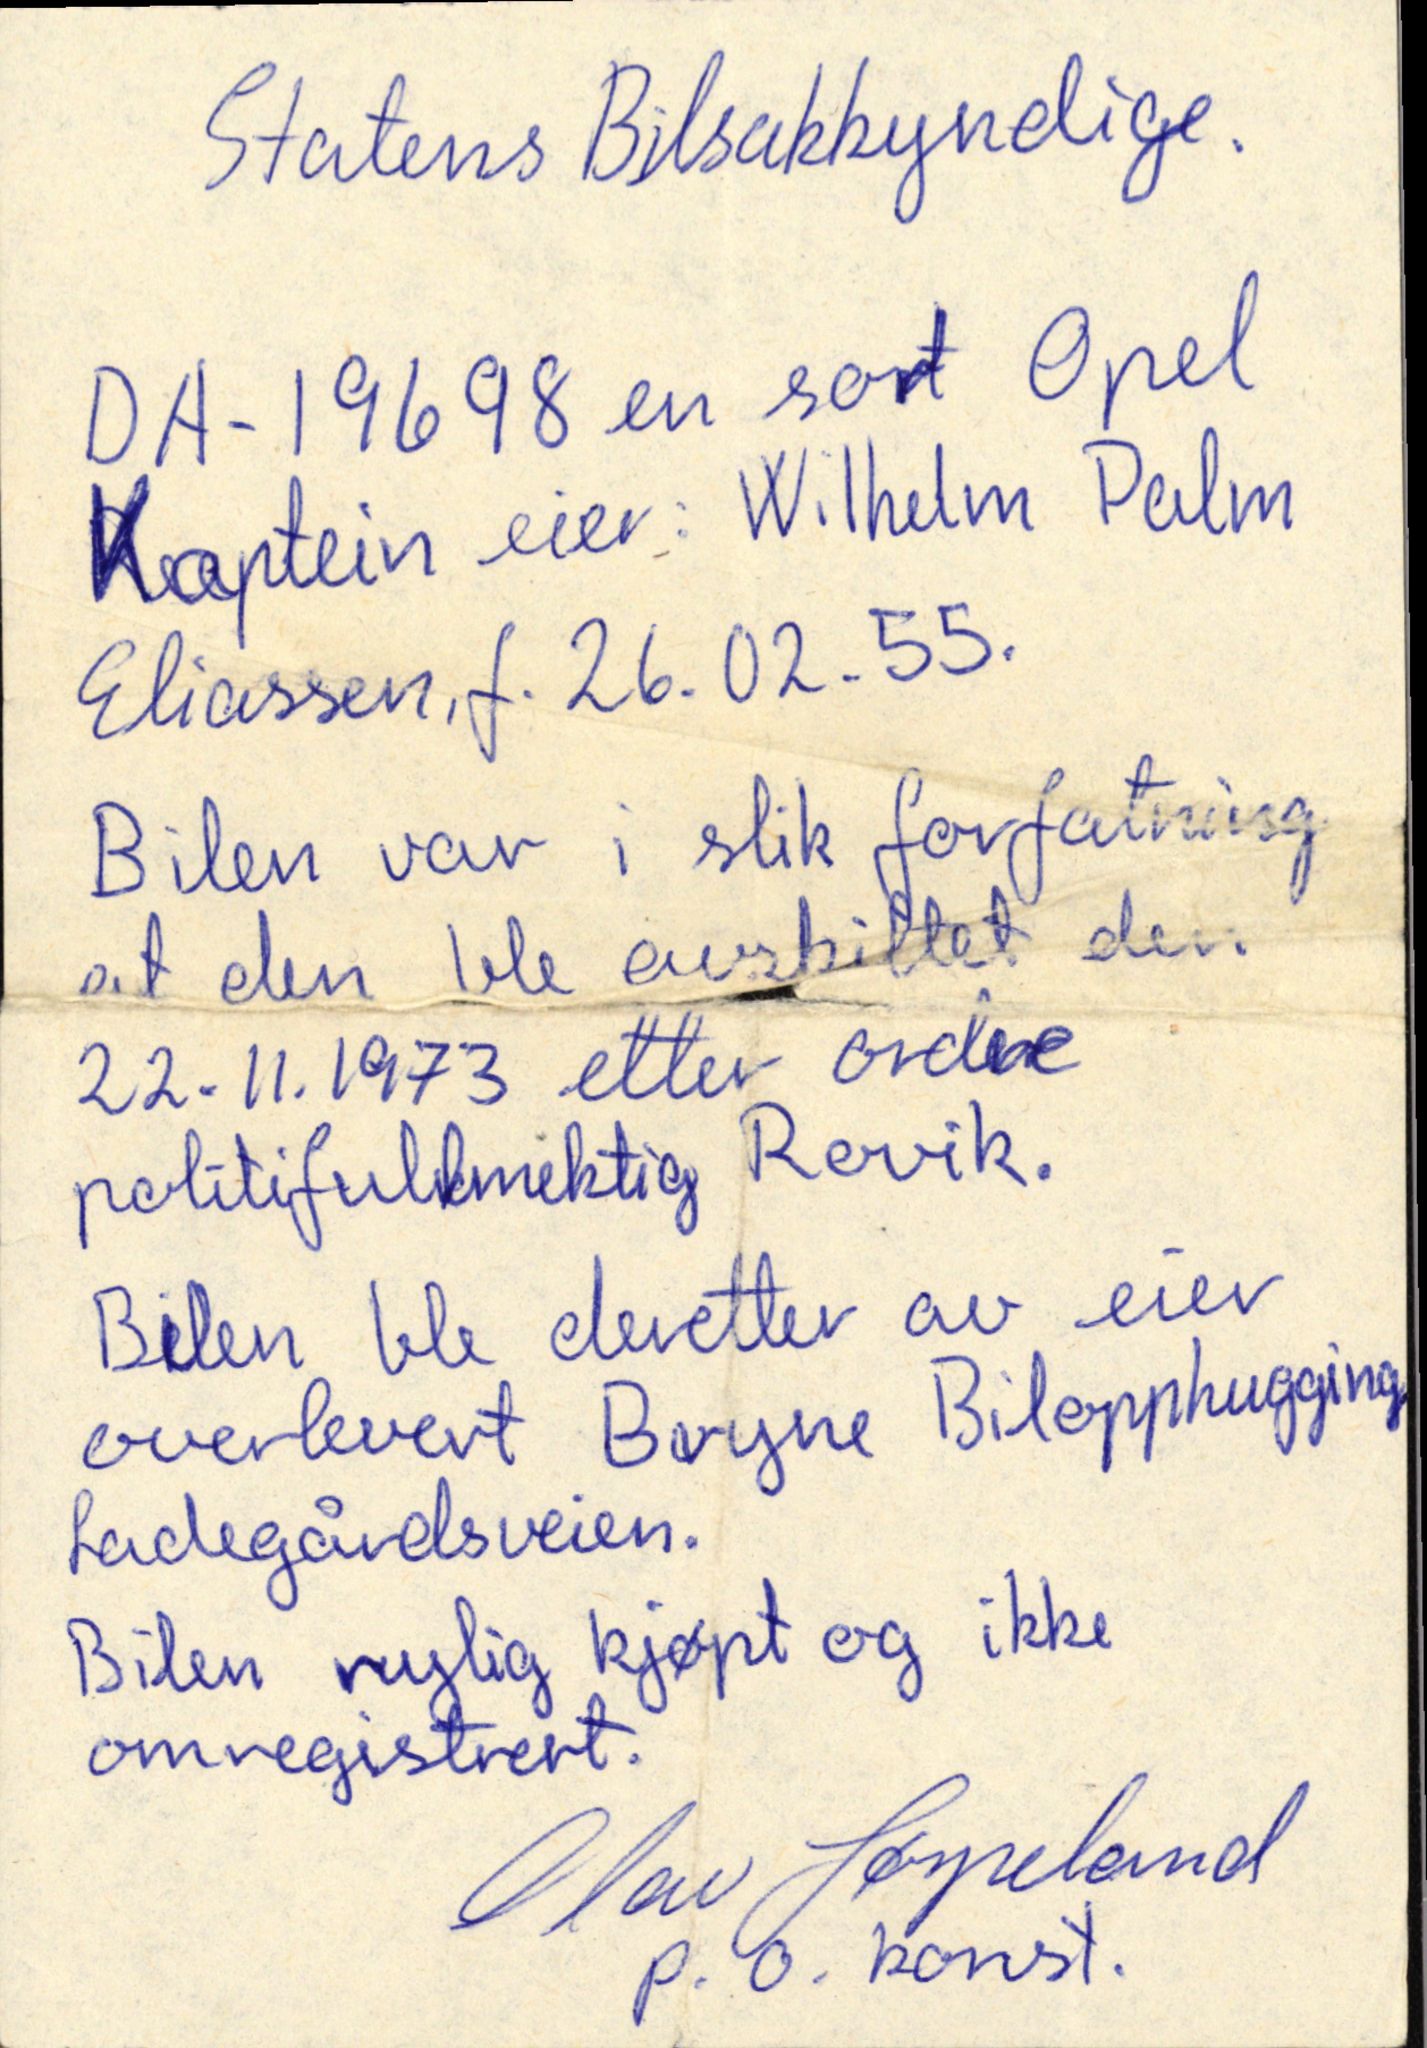 Statens Bilsakkyndige.
DA-19698 en sort Opel
Kaptein eier: Wilhelm Palm
Eliassen, f. 26.02.55.
Bilen var i slik forfatning
at den ble avskiltet den
22.11.1973 etter ordre
politifullmektig Rovik.
Bilen ble deretter av eier
overlevert Bryne Bilopphugging
Ladegårdsveien.
Bilen nylig kjøpt og ikke
omregistrert.
Olav
p. o. konst.